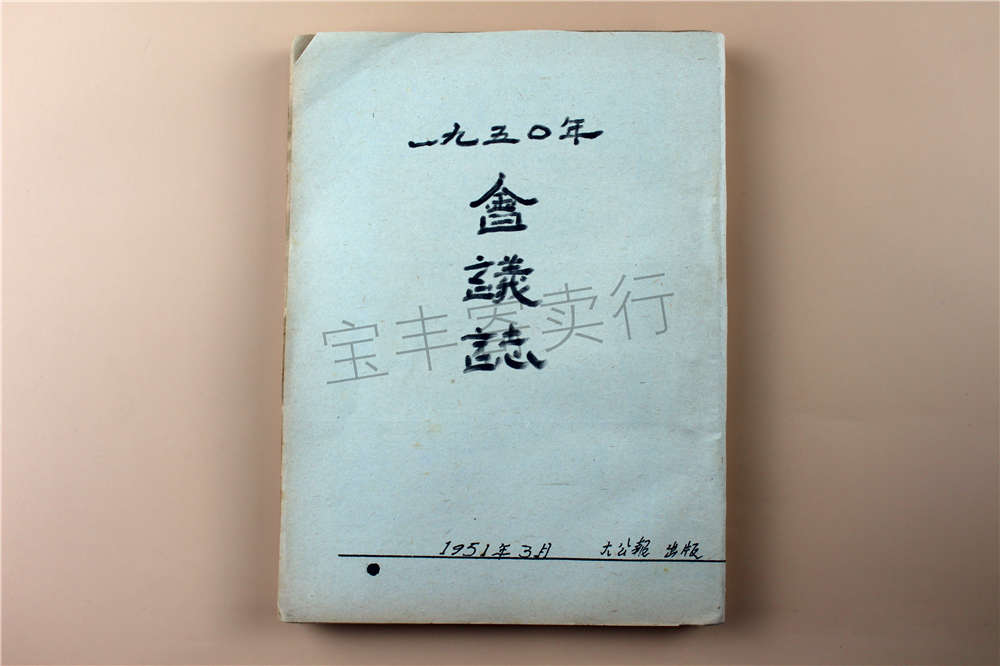 一九五〇年
會
議
誌
宝丰寄卖行
1951年3月 大公報 出版